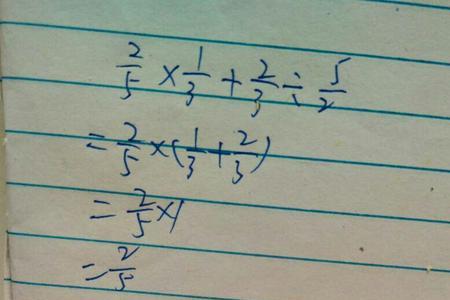 2/5 × 1/3 + 2/3 ÷ 5/2
= 2/5 × (1/3 + 2/3)
= 2/5 × 1
= 2/5